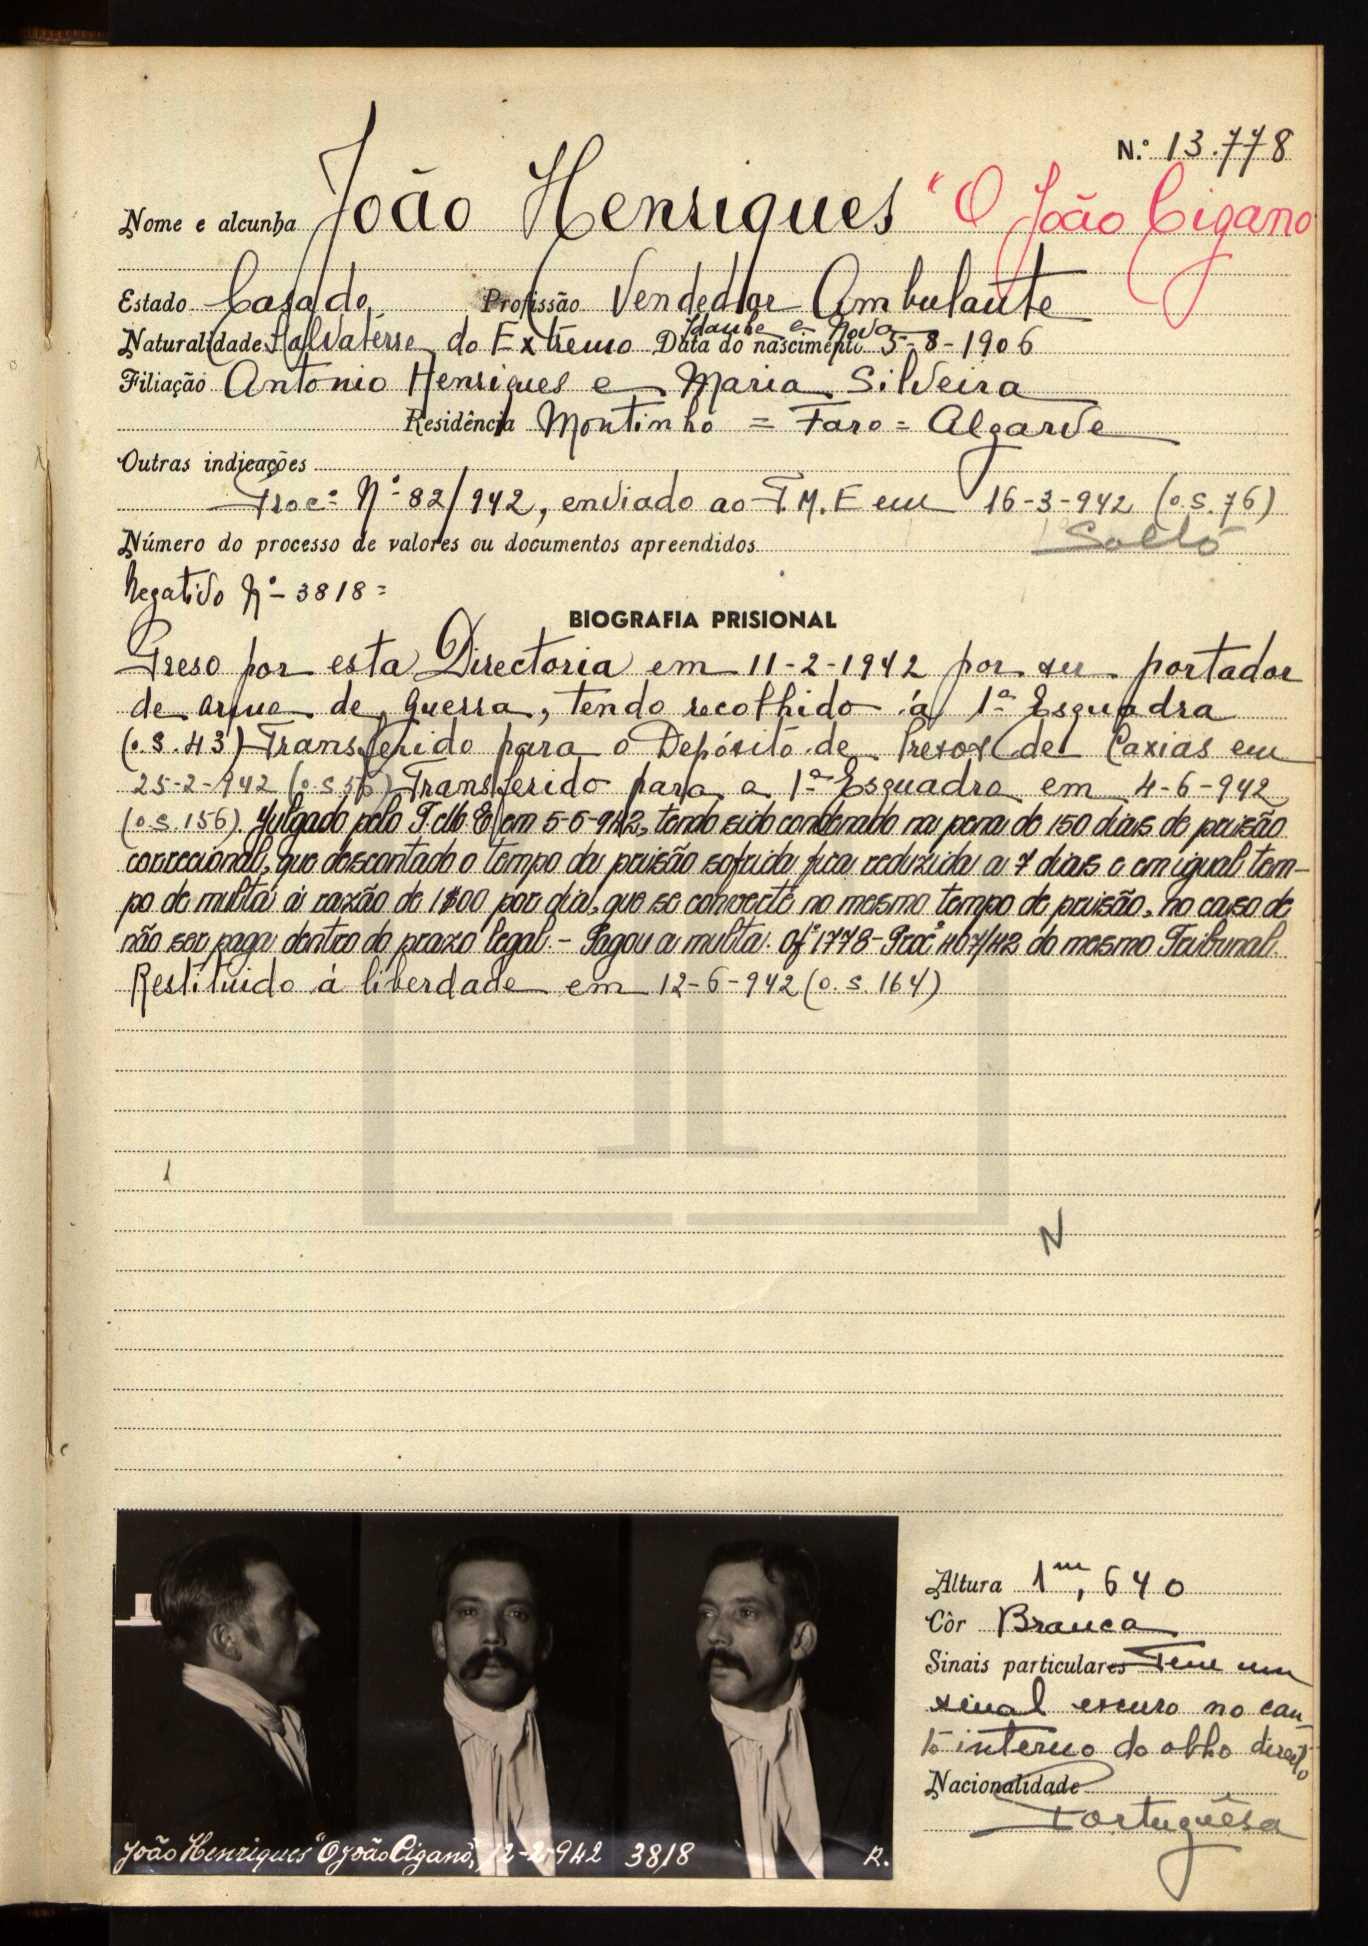 N.º 13.778
Nome e alcunha João Henriques "O João Cigano
Estado Casado Profissão Vendedor Ambulante
Idanha a Nova
Naturalidade Salvaterra do Extremo Data do nascimento 5-8-1906
Filiação Antonio Henriques e Maria Silveira
Residência Montinho = Faro = Algarve
Outras indicações
Proc.º N.º 82/942, enviado ao T.M.E em 16-3-942 (o.s.76)
Número do processo de valores ou documentos apreendidos Solto
Negativo N.º 3818=
BIOGRAFIA PRISIONAL
Preso por esta Directoria em 11-2-1942 por ser portador
de arma de guerra, tendo recolhido á 1ª Esquadra
(o.s.43) Transferido para o Depósito de Presos de Caxias em
25-2-942 (o.s.56) Transferido para a 1ª Esquadra em 4-6-942
(o.s.156). Julgado pelo T.M.E. em 5-6-942, tendo sido condenado na pena de 150 dias de prisão
correcional, que descontado o tempo da prisão sofrida fica reduzida a 7 dias e em igual tem-
po de multa á razão de 1$00 por dia, que se converte no mesmo tempo de prisão, no caso de
não ser paga dentro do prazo legal. - Pagou a multa. Of.º 1778-Proc.º 407/42 do mesmo Tribunal.
Restituido á liberdade em 12-6-942 (o.s.164)
N
João Henriques "O João Cigano", 12-2-942 3818 R.
Altura 1m,640
Côr Branca
Sinais particulares Tem um
sinal escuro no can
to interno do olho direito
Nacionalidade
Portuguêsa